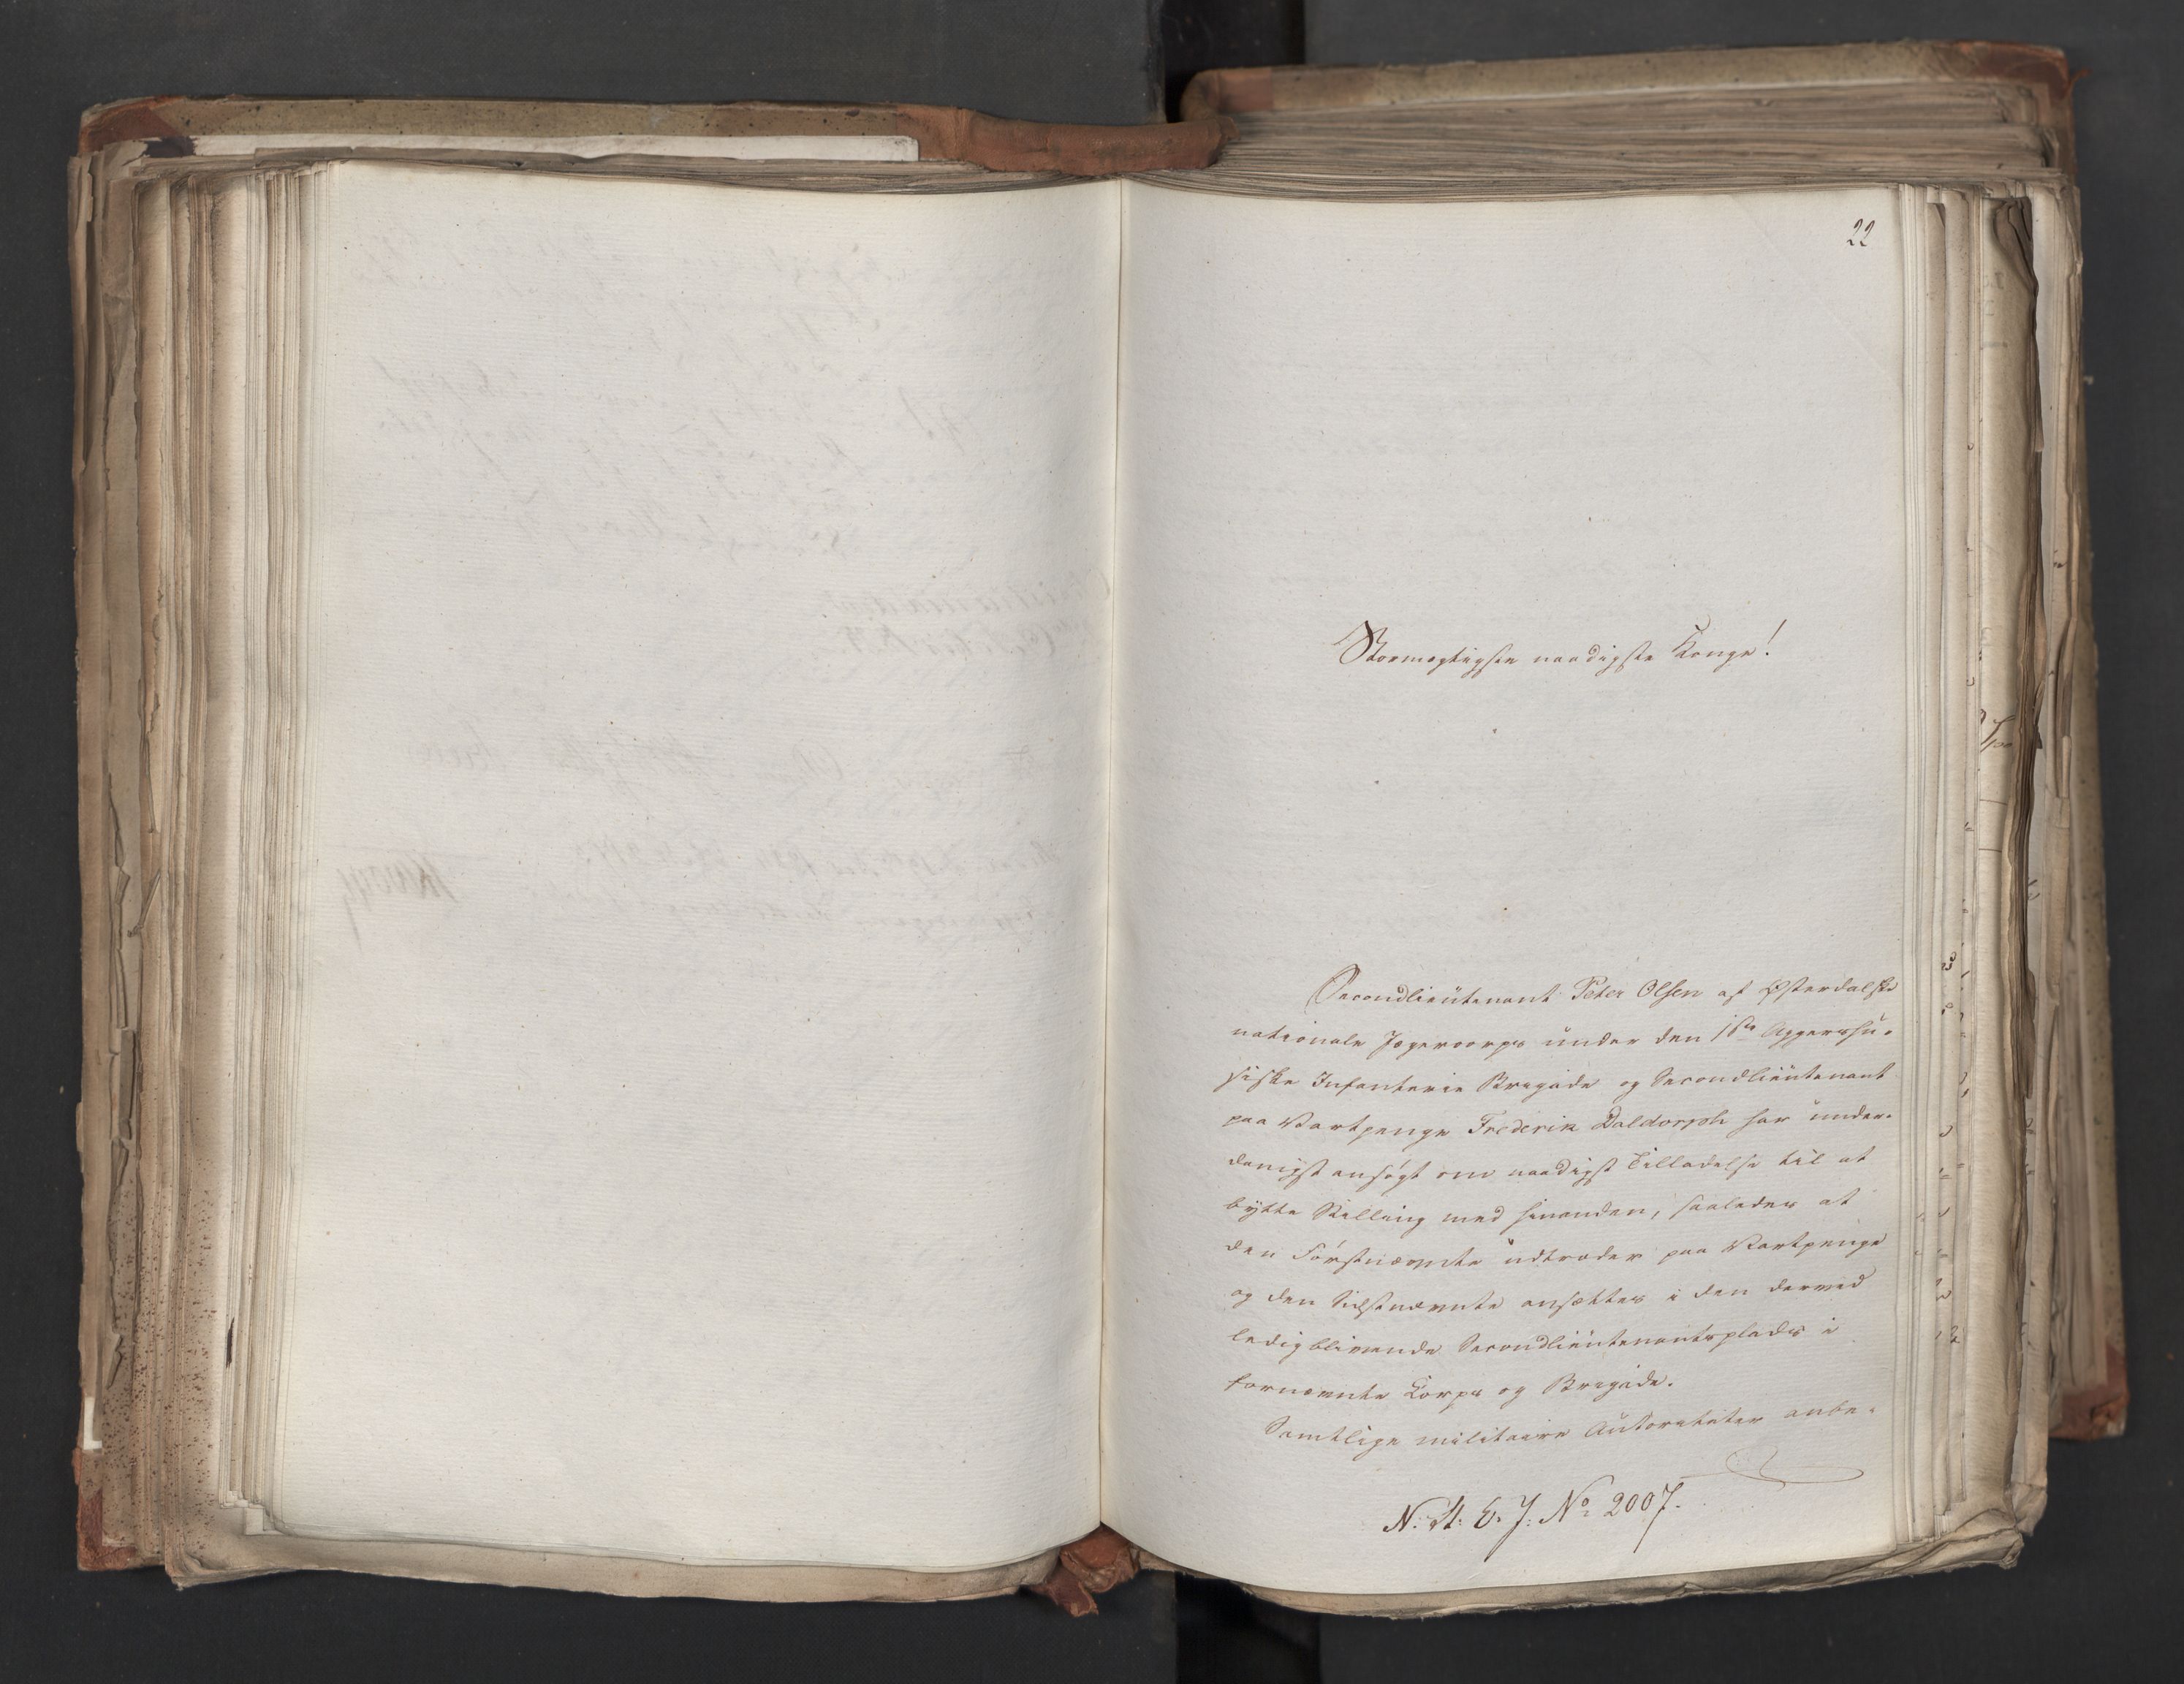 22
Stormægtigste naadigste Konge!
Secondlieutenant Peter Olsen af Østerdalske
nationale Jægercorps under den 1ste Aggershu-
siske Infanterie Brigade og Secondlieutenant
paa Vartpenge Frederik Daldorph har under-
danigst ansøgt om naadigst Tilladelse til at
bytte Stilling med hinanden, saaledes at
den Førstnævnte udtræder paa Vartpenge
og den Sidstnævnte ansættes i den derved
ledigblivende Secondlieutenantsplads i
fornævnte Corps og Brigade.
Samtlige militaire Autoriteter anbe-
N: A: E. J: No 2007.